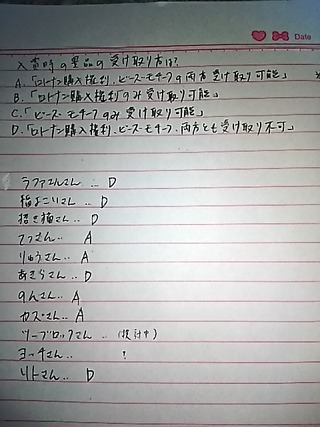 Date
入賞時の景品の受け取り方は?
A.「ロトナン購入権利、ピースモチーフの両方受け取り可能」
B.「ロトナン購入権利」のみ受け取り可能」
C.「ピースモチーフのみ受け取り可能」
D.「ロトナン購入権利、ピースモチーフ、両方とも受け取り不可」
ラファエルさん... D
猫よこいさん.. D
招き猫さん.. D
てつさん.. A
りゅうさん.. A
あきらさん.. D
のんさん.. A
カズさん.. A
ツーブロックさん..(検討中)
ヨッチさん.. ?
リトさん.. D